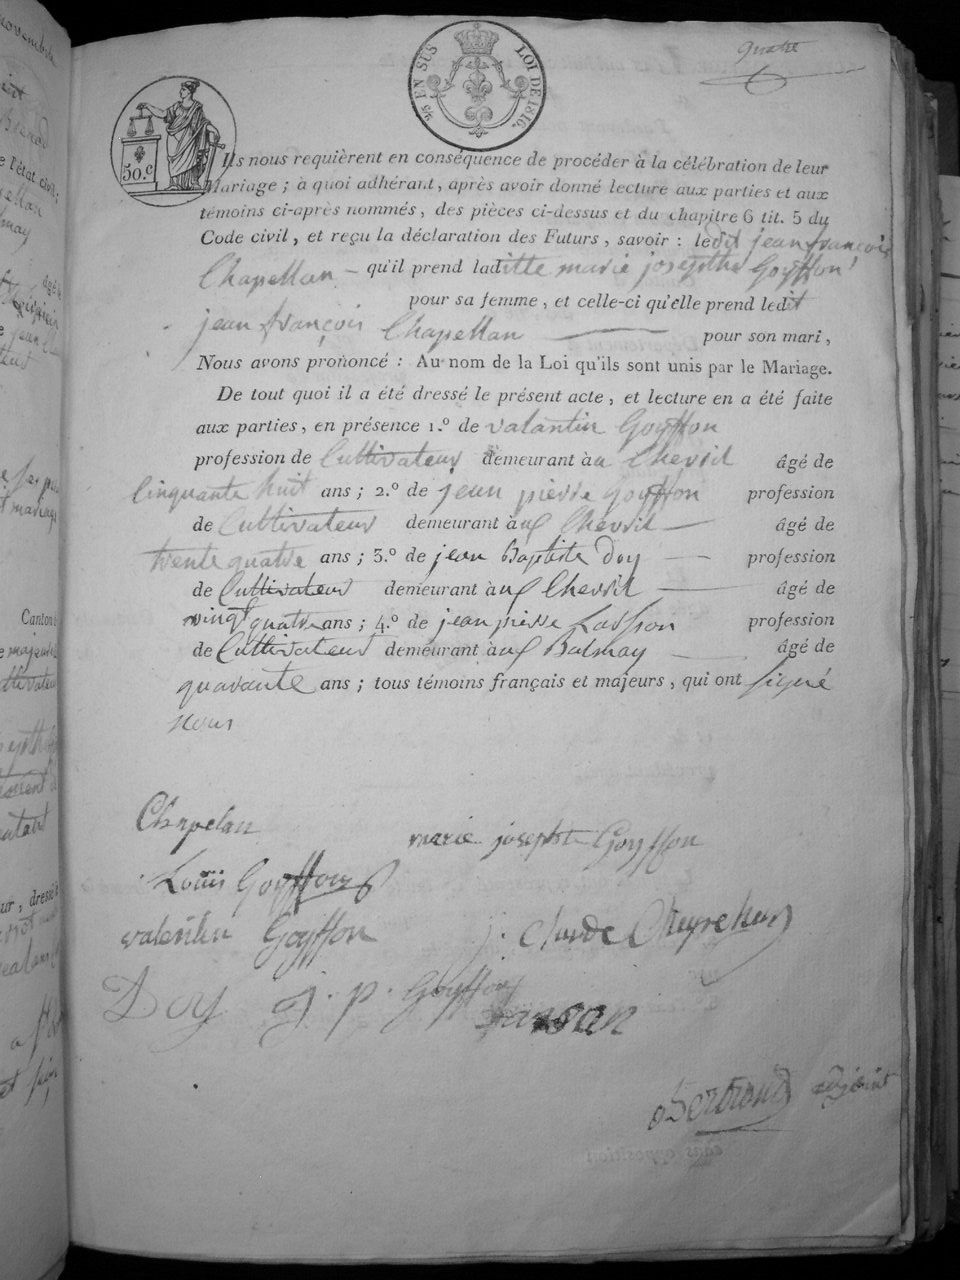 quatre
2/5 EN SUS LOI DE 1816.
50.c
Ils nous requièrent en conséquence de procéder à la célébration de leur
Mariage ; à quoi adhérant, après avoir donné lecture aux parties et aux
témoins ci-après nommés, des pièces ci-dessus et du chapitre 6 tit. 5 du
Code civil, et reçu la déclaration des Futurs, savoir : ledit jean françois
Chapellan – qu'il prend laditte marie josephte Goyffon
pour sa femme, et celle-ci qu'elle prend ledit
jean françois Chapellan — pour son mari,
Nous avons prononcé : Au nom de la Loi qu'ils sont unis par le Mariage.
De tout quoi il a été dressé le présent acte, et lecture en a été faite
aux parties, en présence 1.º de valantin Goyffon
profession de Cultivateur demeurant à au Chevril âgé de
Cinquante huit ans ; 2.º de jean pierre Goyffon profession
de Cultivateur demeurant à au Chevril — âgé de
trente quatre ans ; 3.º de jean Baptiste Doy — profession
de Cultivateur demeurant à au Chevril — âgé de
vingt quatre ans ; 4.º de jean pierre Lasson profession
de Cultivateur demeurant à au Balmay — âgé de
quarante ans ; tous témoins français et majeurs, qui ont signé
nous
Chapelan
marie josephte Goyffon
Louis Goyffon
valentin Goyffon
j. Claude
Doy j. p. Goyffon
Bertrand adjoint